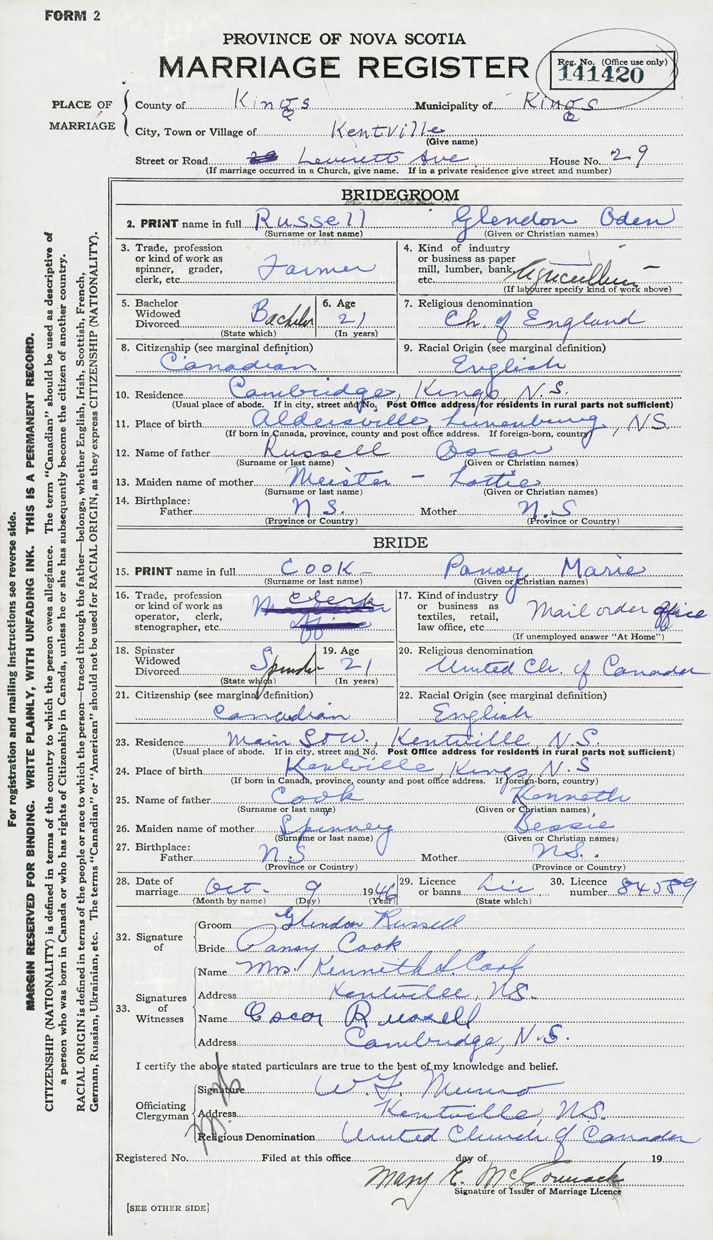 FORM 2
PROVINCE OF NOVA SCOTIA
MARRIAGE REGISTER
Reg. No. (Office use only)
141420
PLACE OF MARRIAGE
County of Kings Municipality of Kings
City, Town or Village of Kentville
(Give name)
Street or Road Leverett Ave House No. 29
(If marriage occurred in a Church, give name. If in a private residence give street and number)
BRIDEGROOM
2. PRINT name in full Russell Glendon Oden
(Surname or last name) (Given or Christian names)
3. Trade, profession or kind of work as spinner, grader, clerk, etc. Farmer
4. Kind of industry or business as paper mill, lumber, bank, etc. Agriculture
(If labourer specify kind of work above)
5. Bachelor Widowed Divorced Bachelor
(State which)
6. Age 21
(In years)
7. Religious denomination
Ch. of England
8. Citizenship (see marginal definition)
Canadian
9. Racial Origin (see marginal definition)
English
10. Residence Cambridge, Kings, N.S.
(Usual place of abode. If in city, street and No. Post Office address for residents in rural parts not sufficient)
11. Place of birth Aldersville, Lunenburg, NS.
(If born in Canada, province, county and post office address. If foreign-born, country)
12. Name of father Russell Oscar
(Surname or last name) (Given or Christian names)
13. Maiden name of mother Meister - Lottie
(Surname or last name) (Given or Christian names)
14. Birthplace:
Father N.S. Mother N.S
(Province or Country) (Province or Country)
BRIDE
15. PRINT name in full COOK Pansy Marie
(Surname or last name) (Given or Christian names)
16. Trade, profession or kind of work as operator, clerk, stenographer, etc. Clerk office
17. Kind of industry or business as textiles, retail, law office, etc. Mail order office
(If unemployed answer "At Home")
18. Spinster Widowed Divorced Spinster
(State which)
19. Age 21
(In years)
20. Religious denomination
United Ch. of Canada
21. Citizenship (see marginal definition)
Canadian
22. Racial Origin (see marginal definition)
English
23. Residence Main St W., Kentville, N.S.
(Usual place of abode. If in city, street and No. Post Office address for residents in rural parts not sufficient)
24. Place of birth Kentville, Kings, N.S
(If born in Canada, province, county and post office address. If foreign-born, country)
25. Name of father Cook Kenneth
(Surname or last name) (Given or Christian names)
26. Maiden name of mother Spinney Bessie
(Surname or last name) (Given or Christian names)
27. Birthplace:
Father N.S Mother NS.
(Province or Country) (Province or Country)
28. Date of marriage Oct. 9 1946
(Month by name) (Day) (Year)
29. Licence or banns Lic
(State which)
30. Licence number 84589
32. Signature of
Groom Glendon Russell
Bride Pansy Cook
33. Signatures of Witnesses
Name Mrs. Kenneth S Cook
Address Kentville, NS.
Name Oscar Russell
Address Cambridge, N.S.
I certify the above stated particulars are true to the best of my knowledge and belief.
Officiating Clergyman
Signature W.F. Munro
Address Kentville, NS.
Religious Denomination United Church of Canada
Registered No. Filed at this office day of 19
Mary E. McCormack
Signature of Issuer of Marriage Licence
[SEE OTHER SIDE]
For registration and mailing instructions see reverse side.
MARGIN RESERVED FOR BINDING. WRITE PLAINLY, WITH UNFADING INK. THIS IS A PERMANENT RECORD.
CITIZENSHIP (NATIONALITY) is defined in terms of the country to which the person owes allegiance. The term "Canadian" should be used as descriptive of
a person who was born in Canada or who has rights of Citizenship in Canada, unless he or she has subsequently become the citizen of another country.
RACIAL ORIGIN is defined in terms of the people or race to which the person—traced through the father—belongs, whether English, Irish, Scottish, French,
German, Russian, Ukrainian, etc. The terms "Canadian" or "American" should not be used for RACIAL ORIGIN, as they express CITIZENSHIP (NATIONALITY).